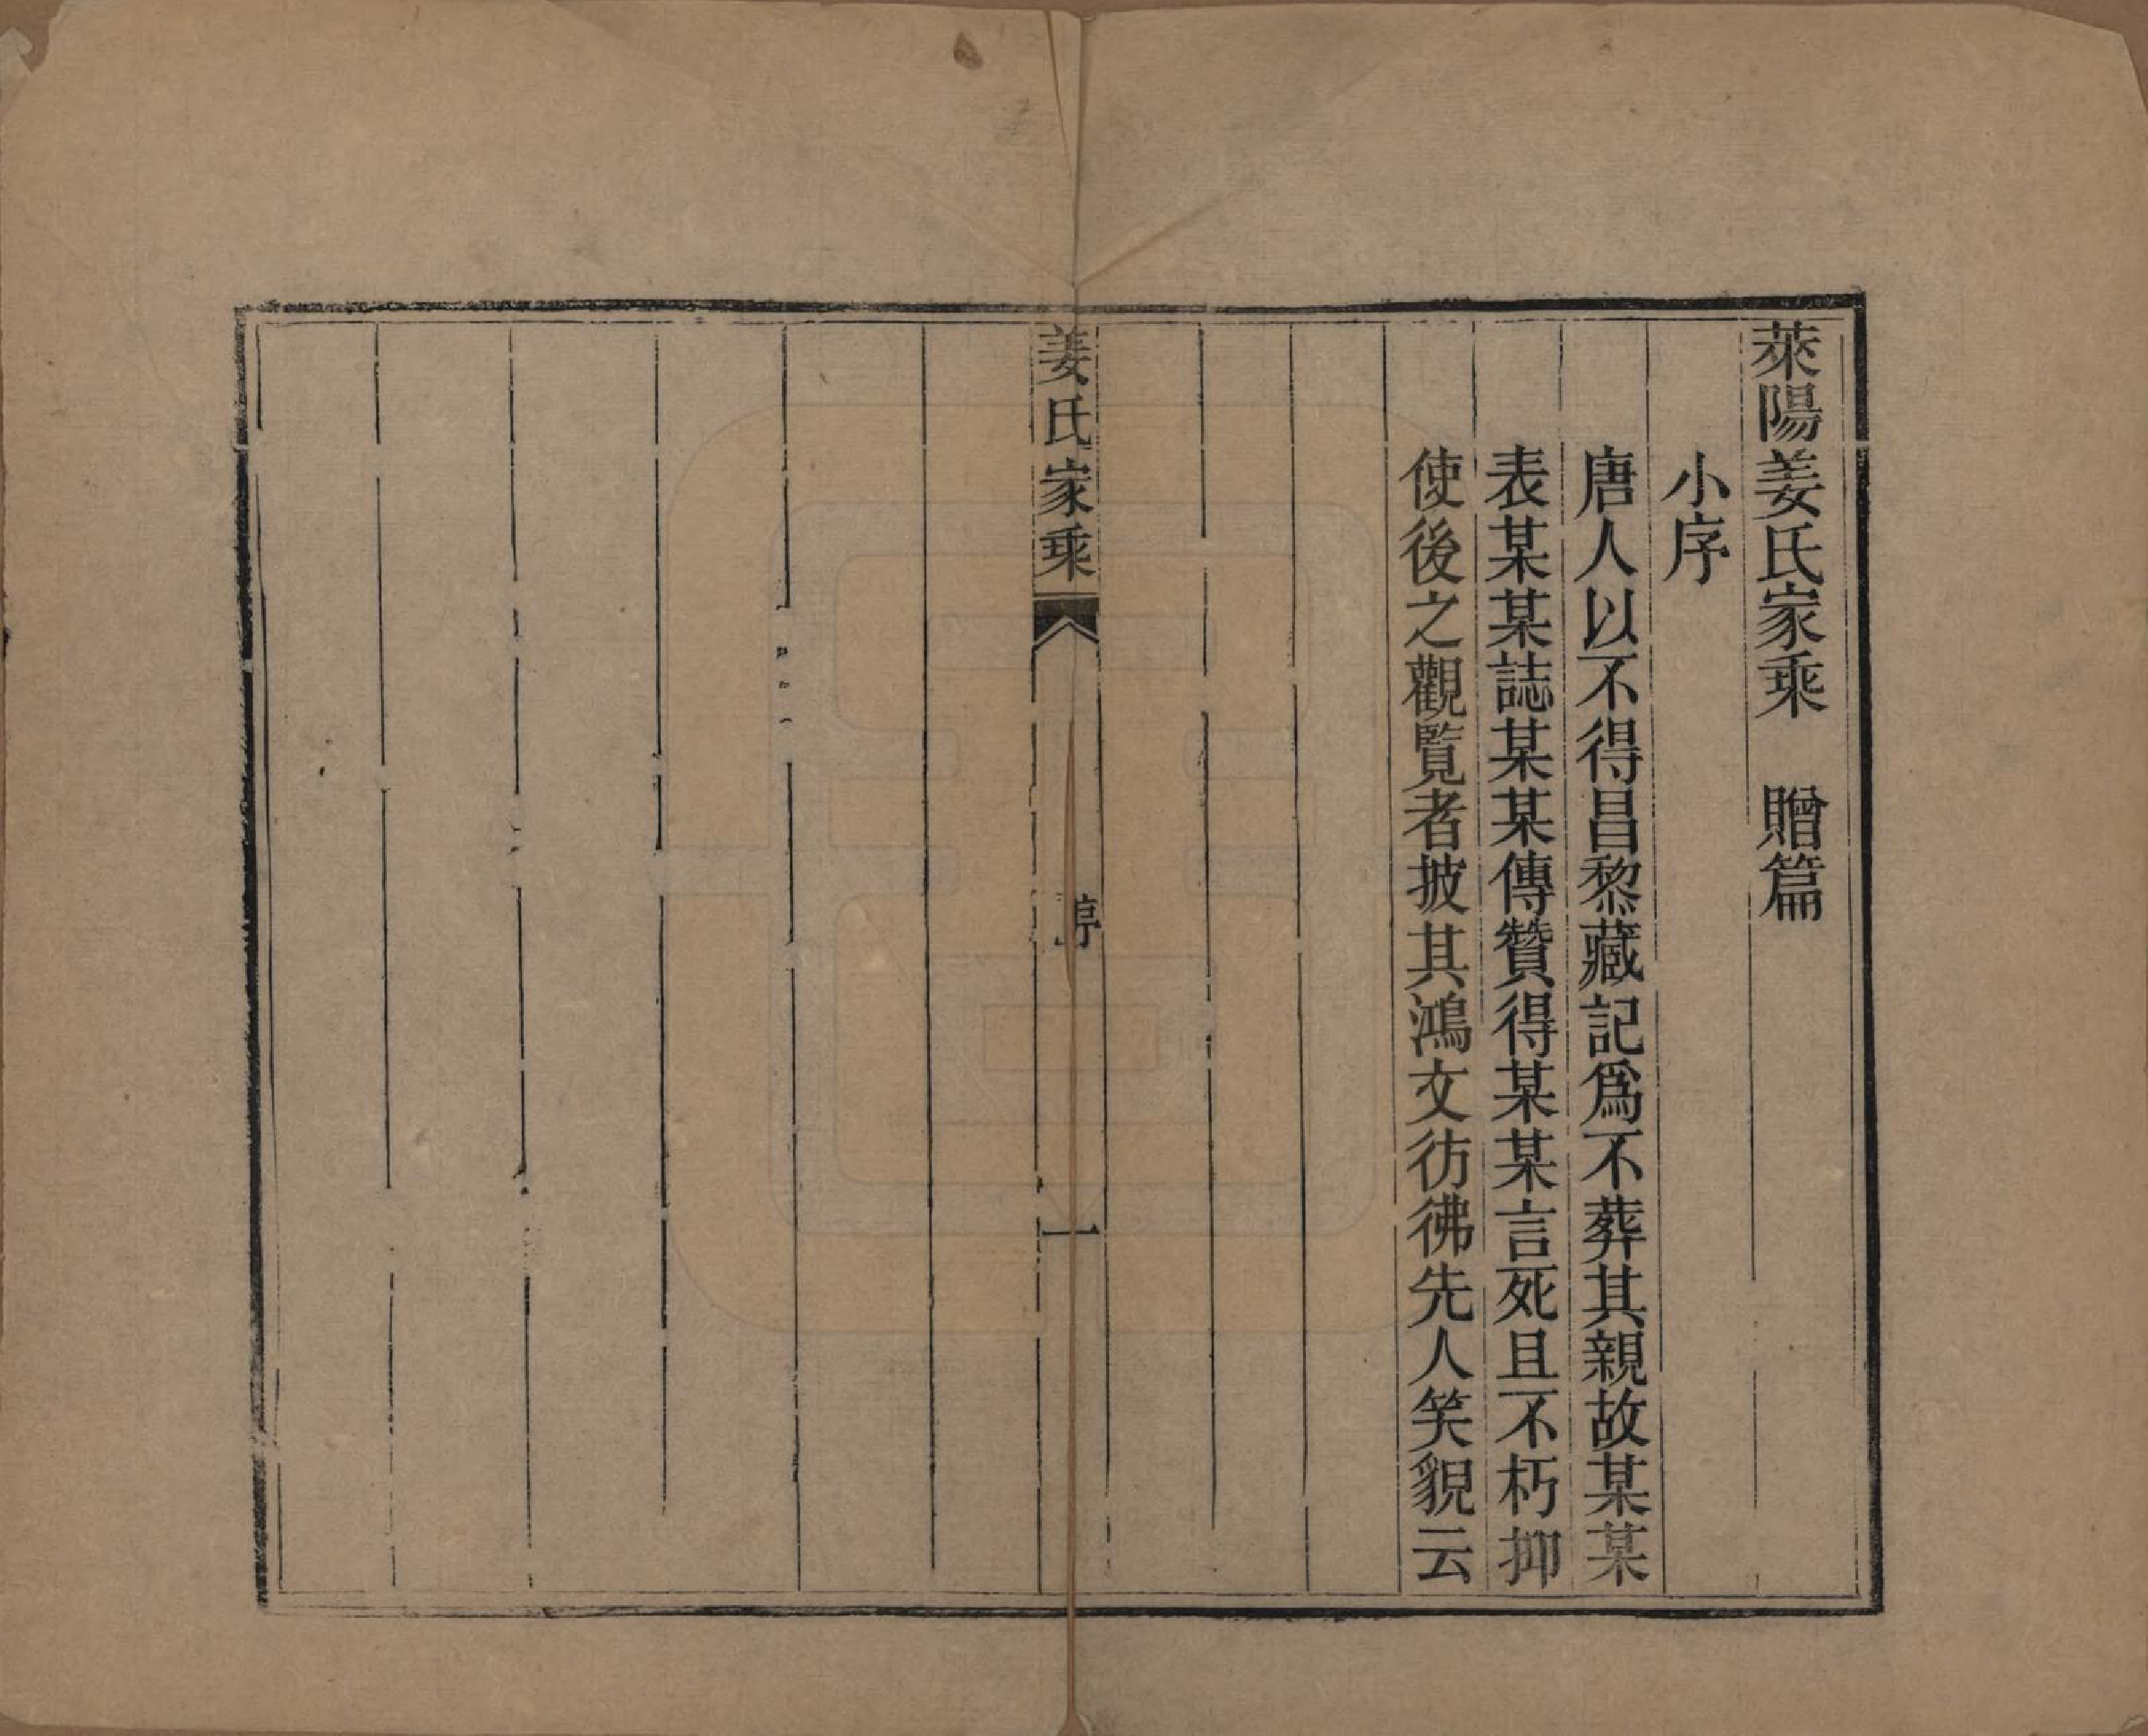 萊陽姜氏家乘　贈篇
小序
唐人以不得昌黎藏記爲不葬其親故某某
表某某誌某某傳贊得某某言死且不朽抑
使後之觀覽者披其鴻文彷彿先人笑貌云
姜氏家乘
序
一